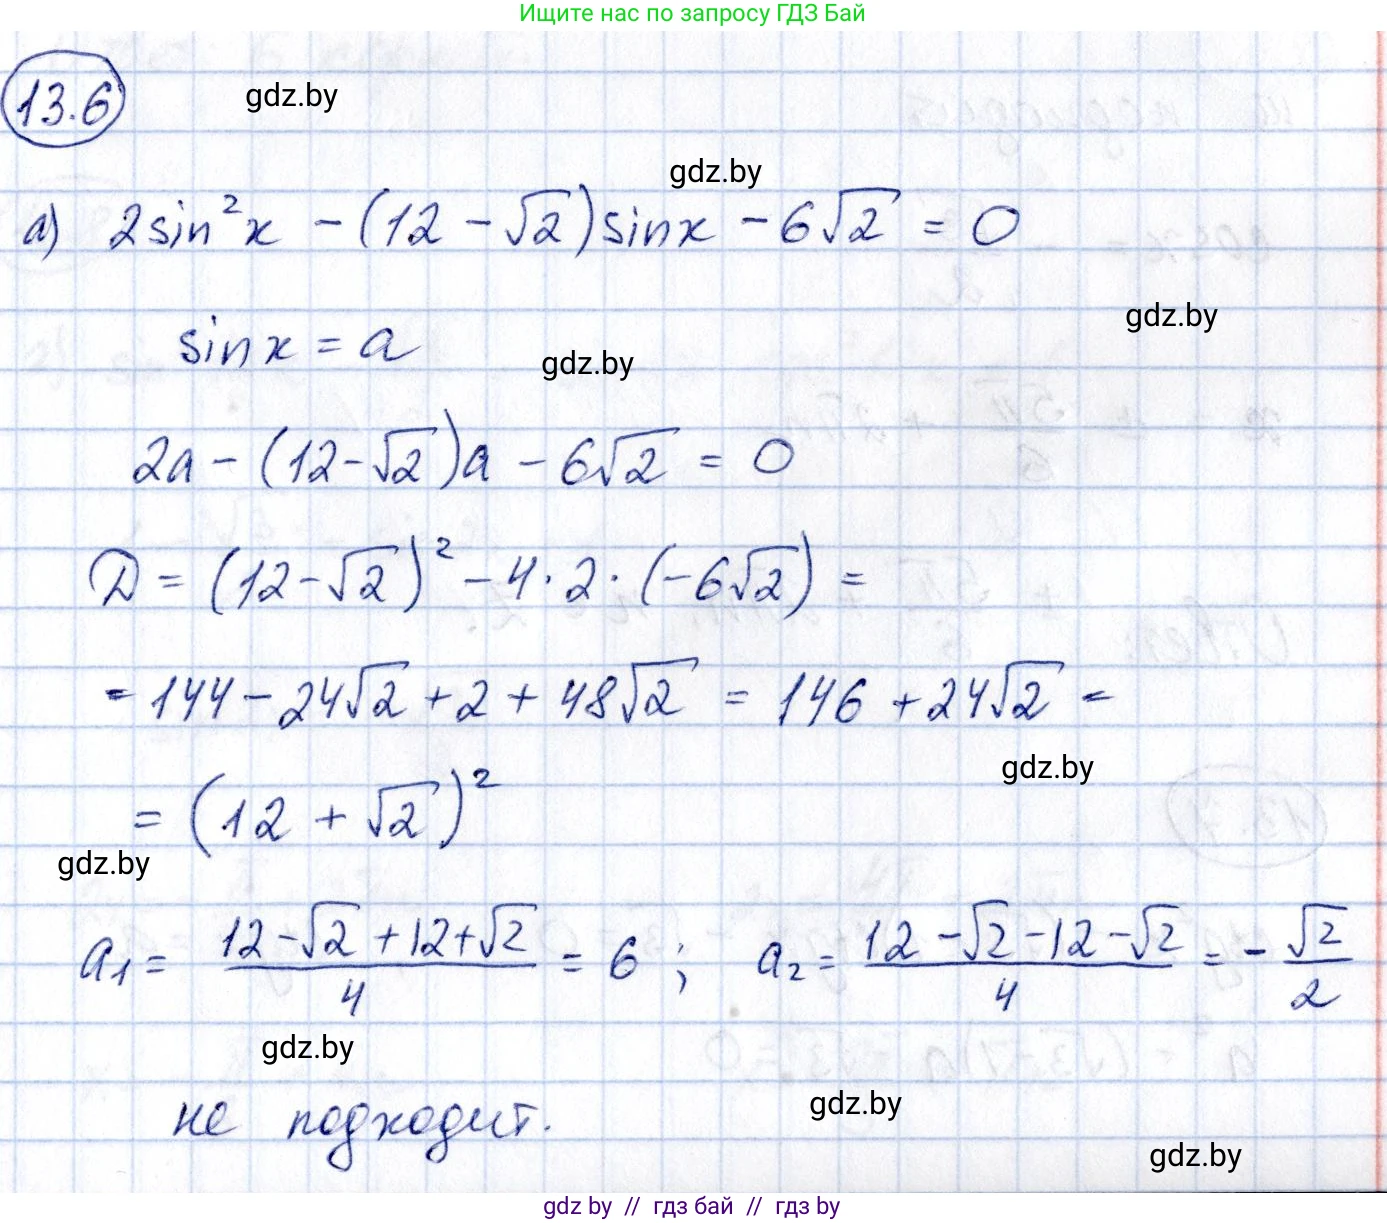 Ищите нас по запросу ГДЗ Бай
13.6
gdz.by
gdz.by
а) 2sin²x − (12 − √2)sinx − 6√2 = 0
gdz.by
sinx = a
gdz.by
2a − (12−√2)a − 6√2 = 0
D = (12−√2)² − 4·2·(−6√2) =
= 144 − 24√2 + 2 + 48√2 = 146 + 24√2 =
gdz.by
= (12 + √2)²
gdz.by
a₁ = (12−√2+12+√2)/4 = 6 ; a₂ = (12−√2−12−√2)/4 = −√2/2
gdz.by
не подходит.
gdz.by
gdz.by
gdz by // гдз бай // гдз by